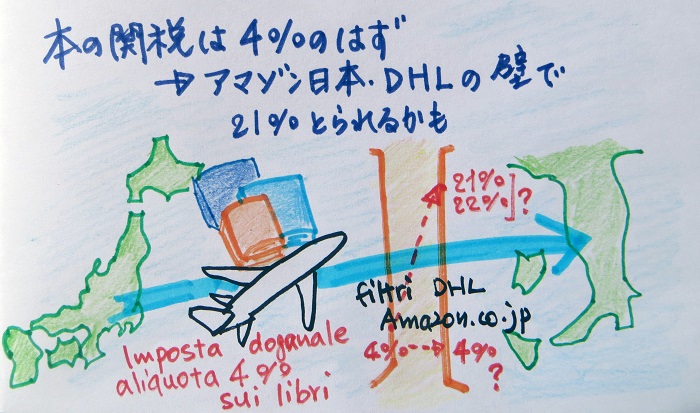 本の関税は4%のはず
→アマゾン日本・DHLの壁で
21%とられるかも
21%
22%]?
filtri DHL
Amazon.co.jp
4%--→4%
?
Imposta doganale
aliquota 4%
sui libri